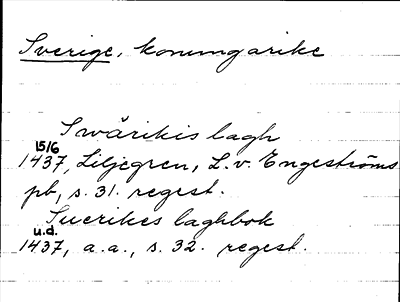 Sverige, konungarike
Swärikis lagh
15/6
1437, Liljegren, L.v. Engeströms
pb, s. 31. regest.
Suerikes laghbok
u.d.
1437, a.a., s. 32. regest.